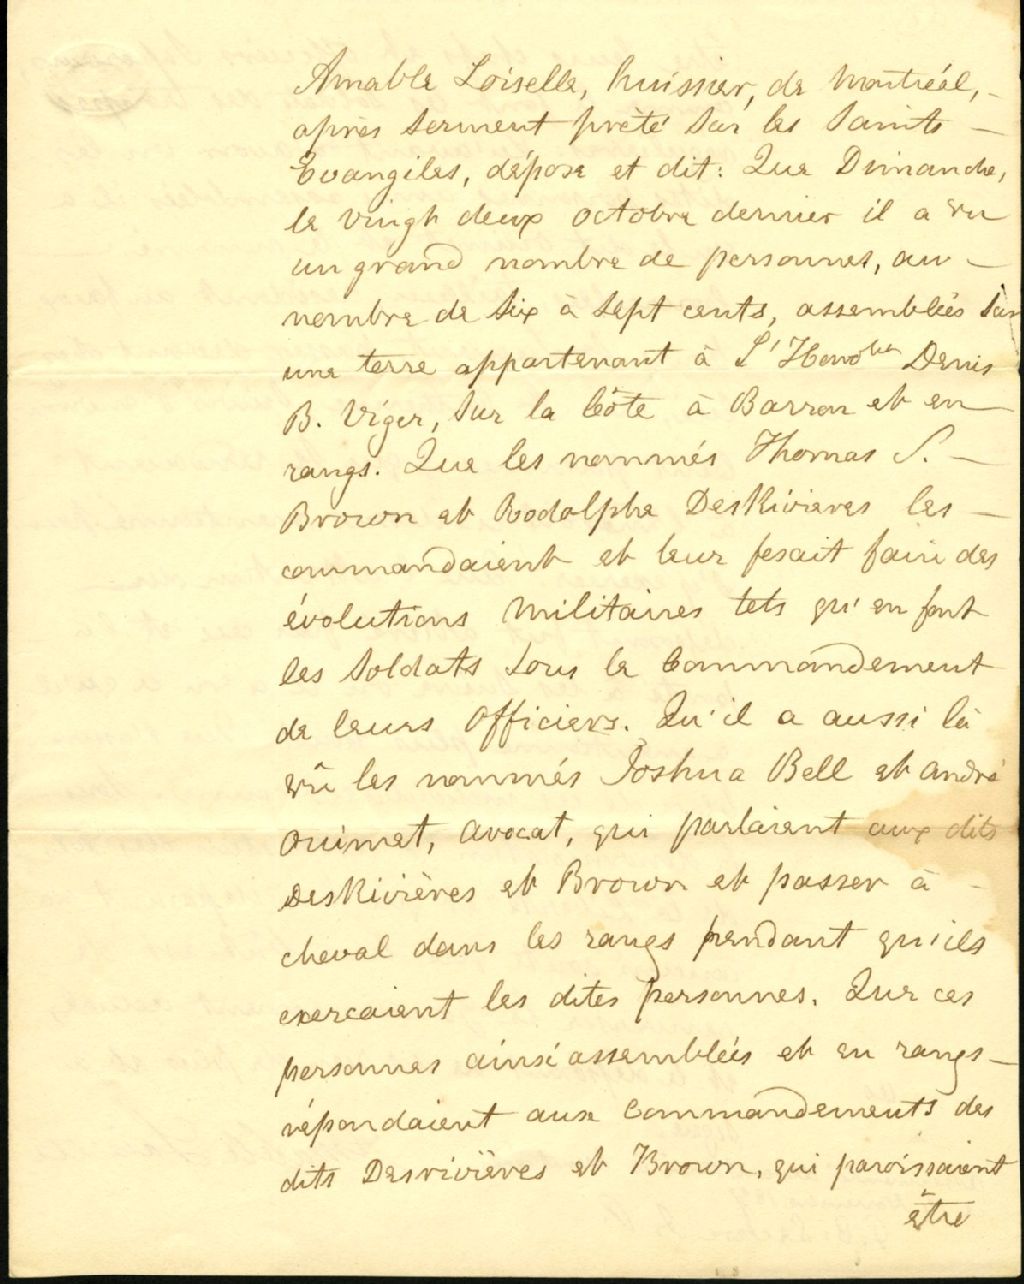 Amable Loiselle, huissier, de Montréal, -
après serment prêté sur les Saints -
Evangiles, dépose et dit: Que Dimanche,
le vingt deux octobre dernier il a vu
un grand nombre de personnes, au -
nombre de six à sept cents, assemblées sur
une terre appartenant à L'Honoble Denis
B. Viger, sur la Côte à Barron et en
rangs. Que les nommés Thomas S. -
Brown et Rodolphe DesRivieres les -
commandaient et leur fesait faire des
évolutions militaires tels qu'en font
les soldats sous le Commandement
de leurs officiers. Qu'il a aussi là
vû les nommés Joshua Bell et andré
Ouimet, avocat, qui parlaient aux dits
DesRivières et Brown et passer à -
cheval dans les rangs pendant qu'ils
exercaient les dites personnes. Que ces
personnes ainsi assemblées et en rangs -
répondaient aux Commandements des
dits Desrivières et Brown, qui paroissaient
être